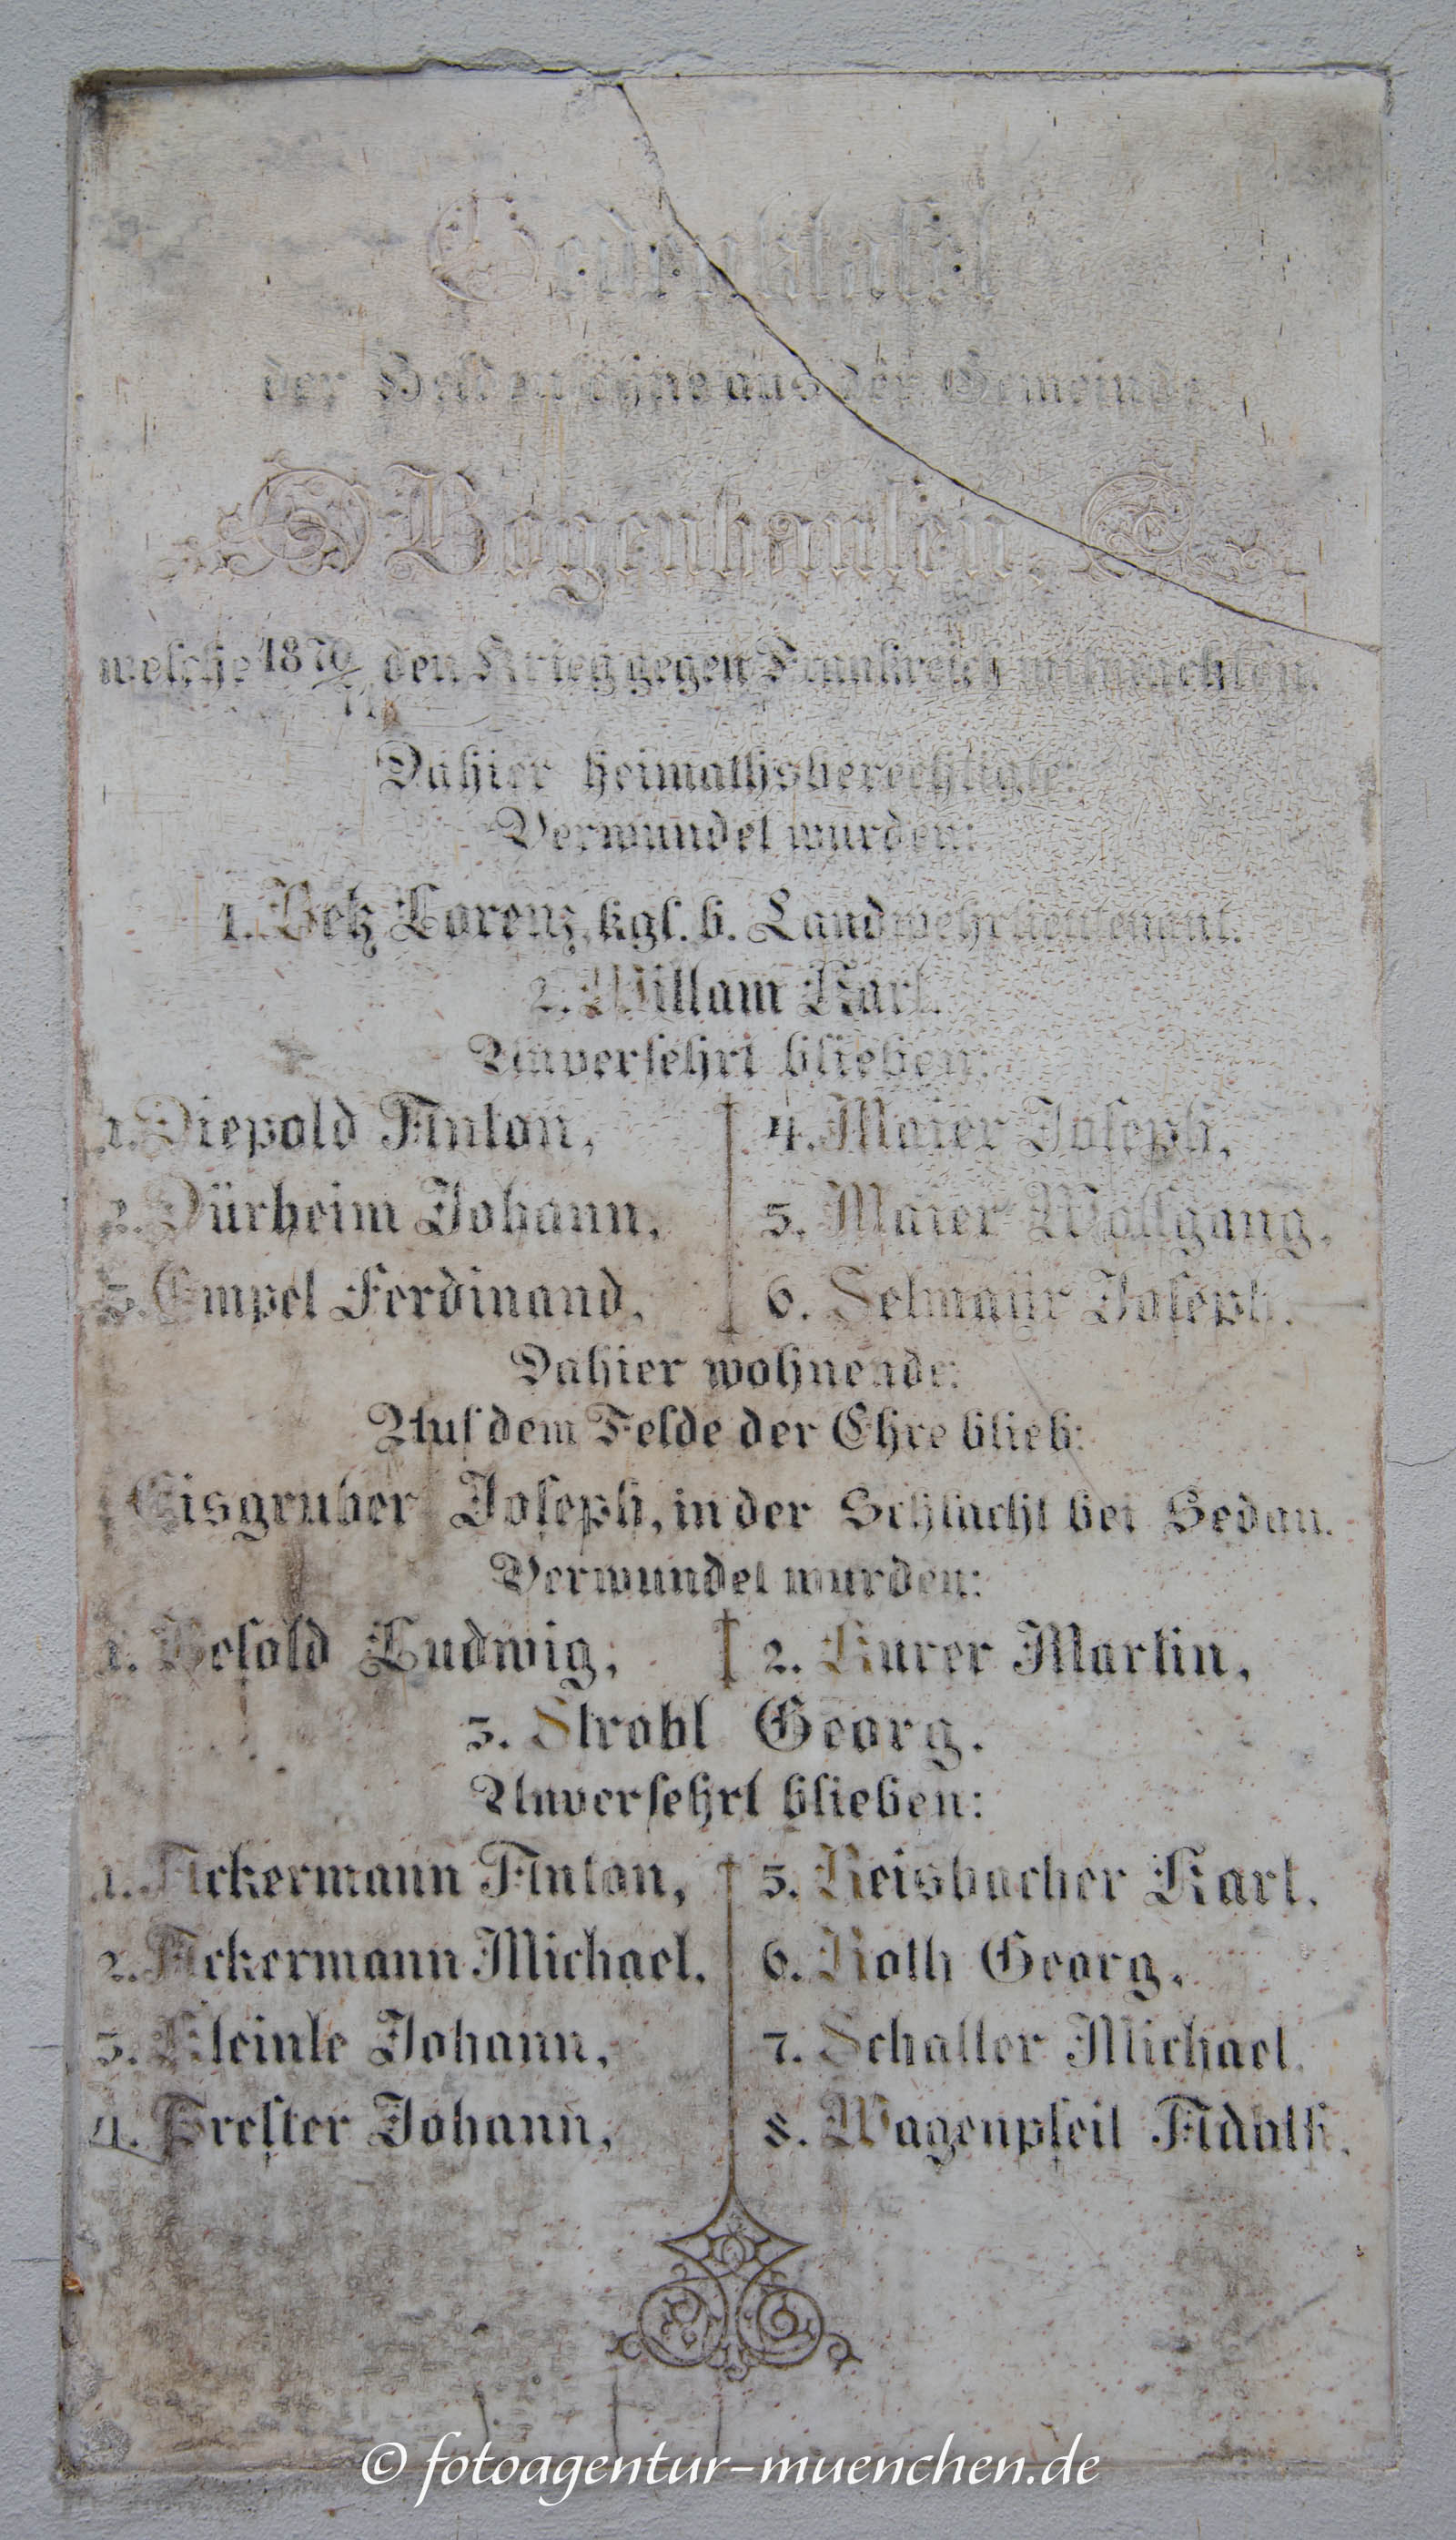 Gedenktafel
der Heldensöhne aus der Gemeinde
Bogenhausen,
welche 1870/71 den Krieg gegen Frankreich mitmachten.
Dahier heimathsberechtigte:
Verwundet wurden:
1. Betz Lorenz, kgl. b. Landwehrlieutenant.
2. Willam Karl.
Unversehrt blieben:
1. Diepold Anton, 4. Maier Joseph,
2. Dürheim Johann, 5. Maier Wolfgang,
3. Empel Ferdinand, 6. Selmaÿr Joseph.
Dahier wohnende:
Auf dem Felde der Ehre blieb:
Eisgruber Joseph, in der Schlacht bei Sedan.
Verwundet wurden:
1. Besold Ludwig, 2. Kurer Martin,
3. Strobl Georg.
Unversehrt blieben:
1. Ackermann Anton, 5. Reisbacher Karl,
2. Ackermann Michael, 6. Roth Georg,
3. Kleinle Johann, 7. Schaller Michael,
4. Prester Johann, 8. Wagenpfeil Adolf.
© fotoagentur-muenchen.de